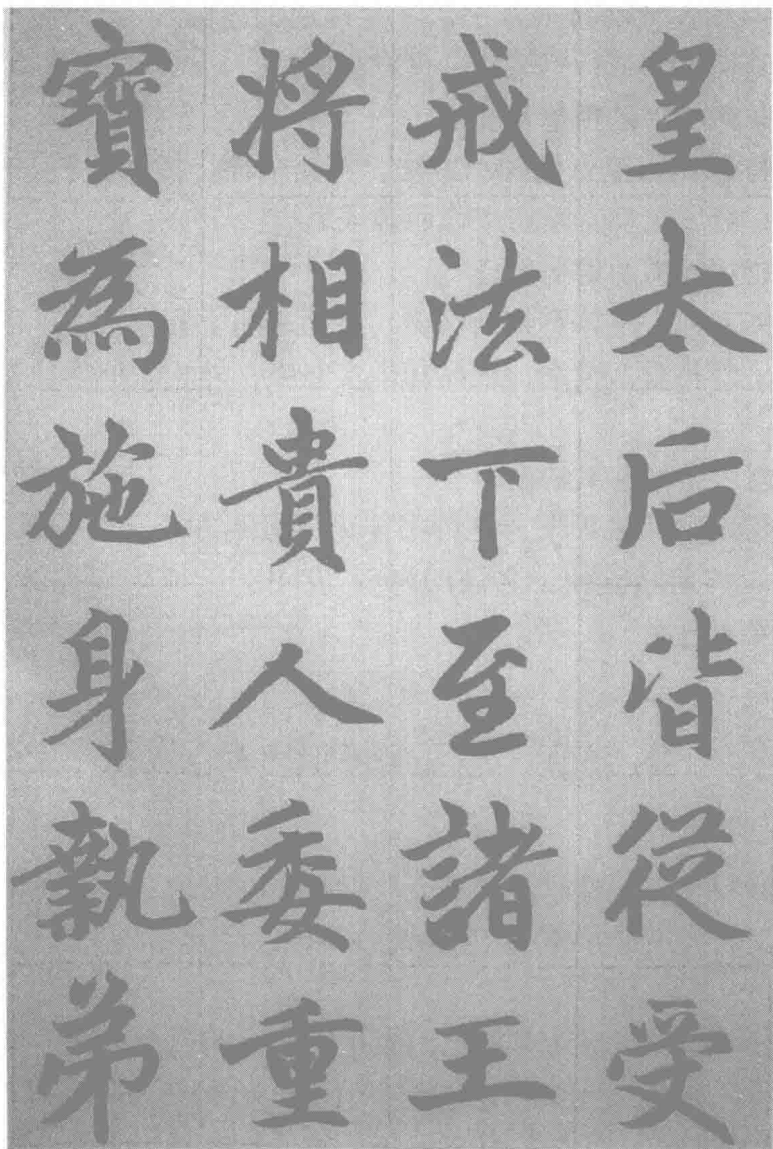 皇太后皆從受
戒法下至諸王
將相貴人委重
寶為施身執弟